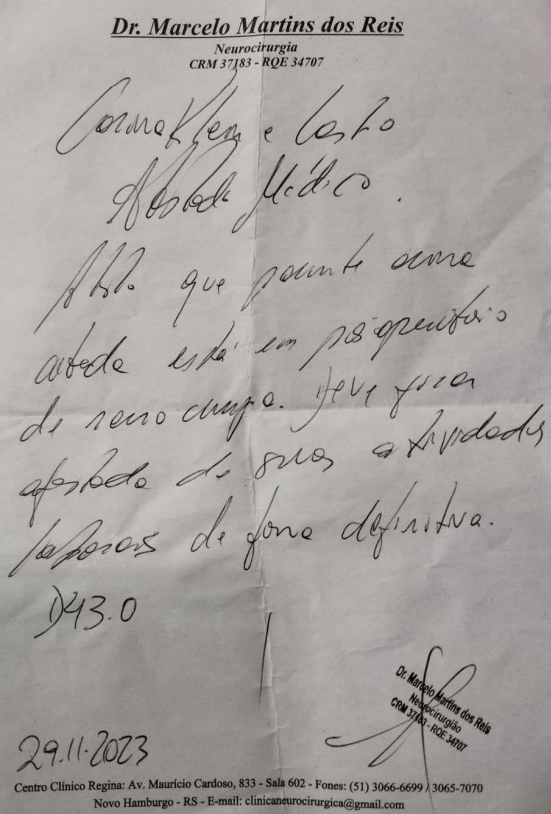 Dr. Marcelo Martins dos Reis
Neurocirurgia
CRM 37183 - RQE 34707
e Castro
Atestado Médico.
Atesto que paciente acima
citada está em pós operatório
de neurocirurgia. Deve ficar
afastada de suas atividades
laborais de forma definitiva.
D43.0
Dr. Marcelo Martins dos Reis
Neurocirurgião
CRM 37183 - RQE 34707
29.11.2023
Centro Clínico Regina: Av. Maurício Cardoso, 833 - Sala 602 - Fones: (51) 3066-6699 / 3065-7070
Novo Hamburgo - RS - E-mail: clinicaneurocirurgica@gmail.com